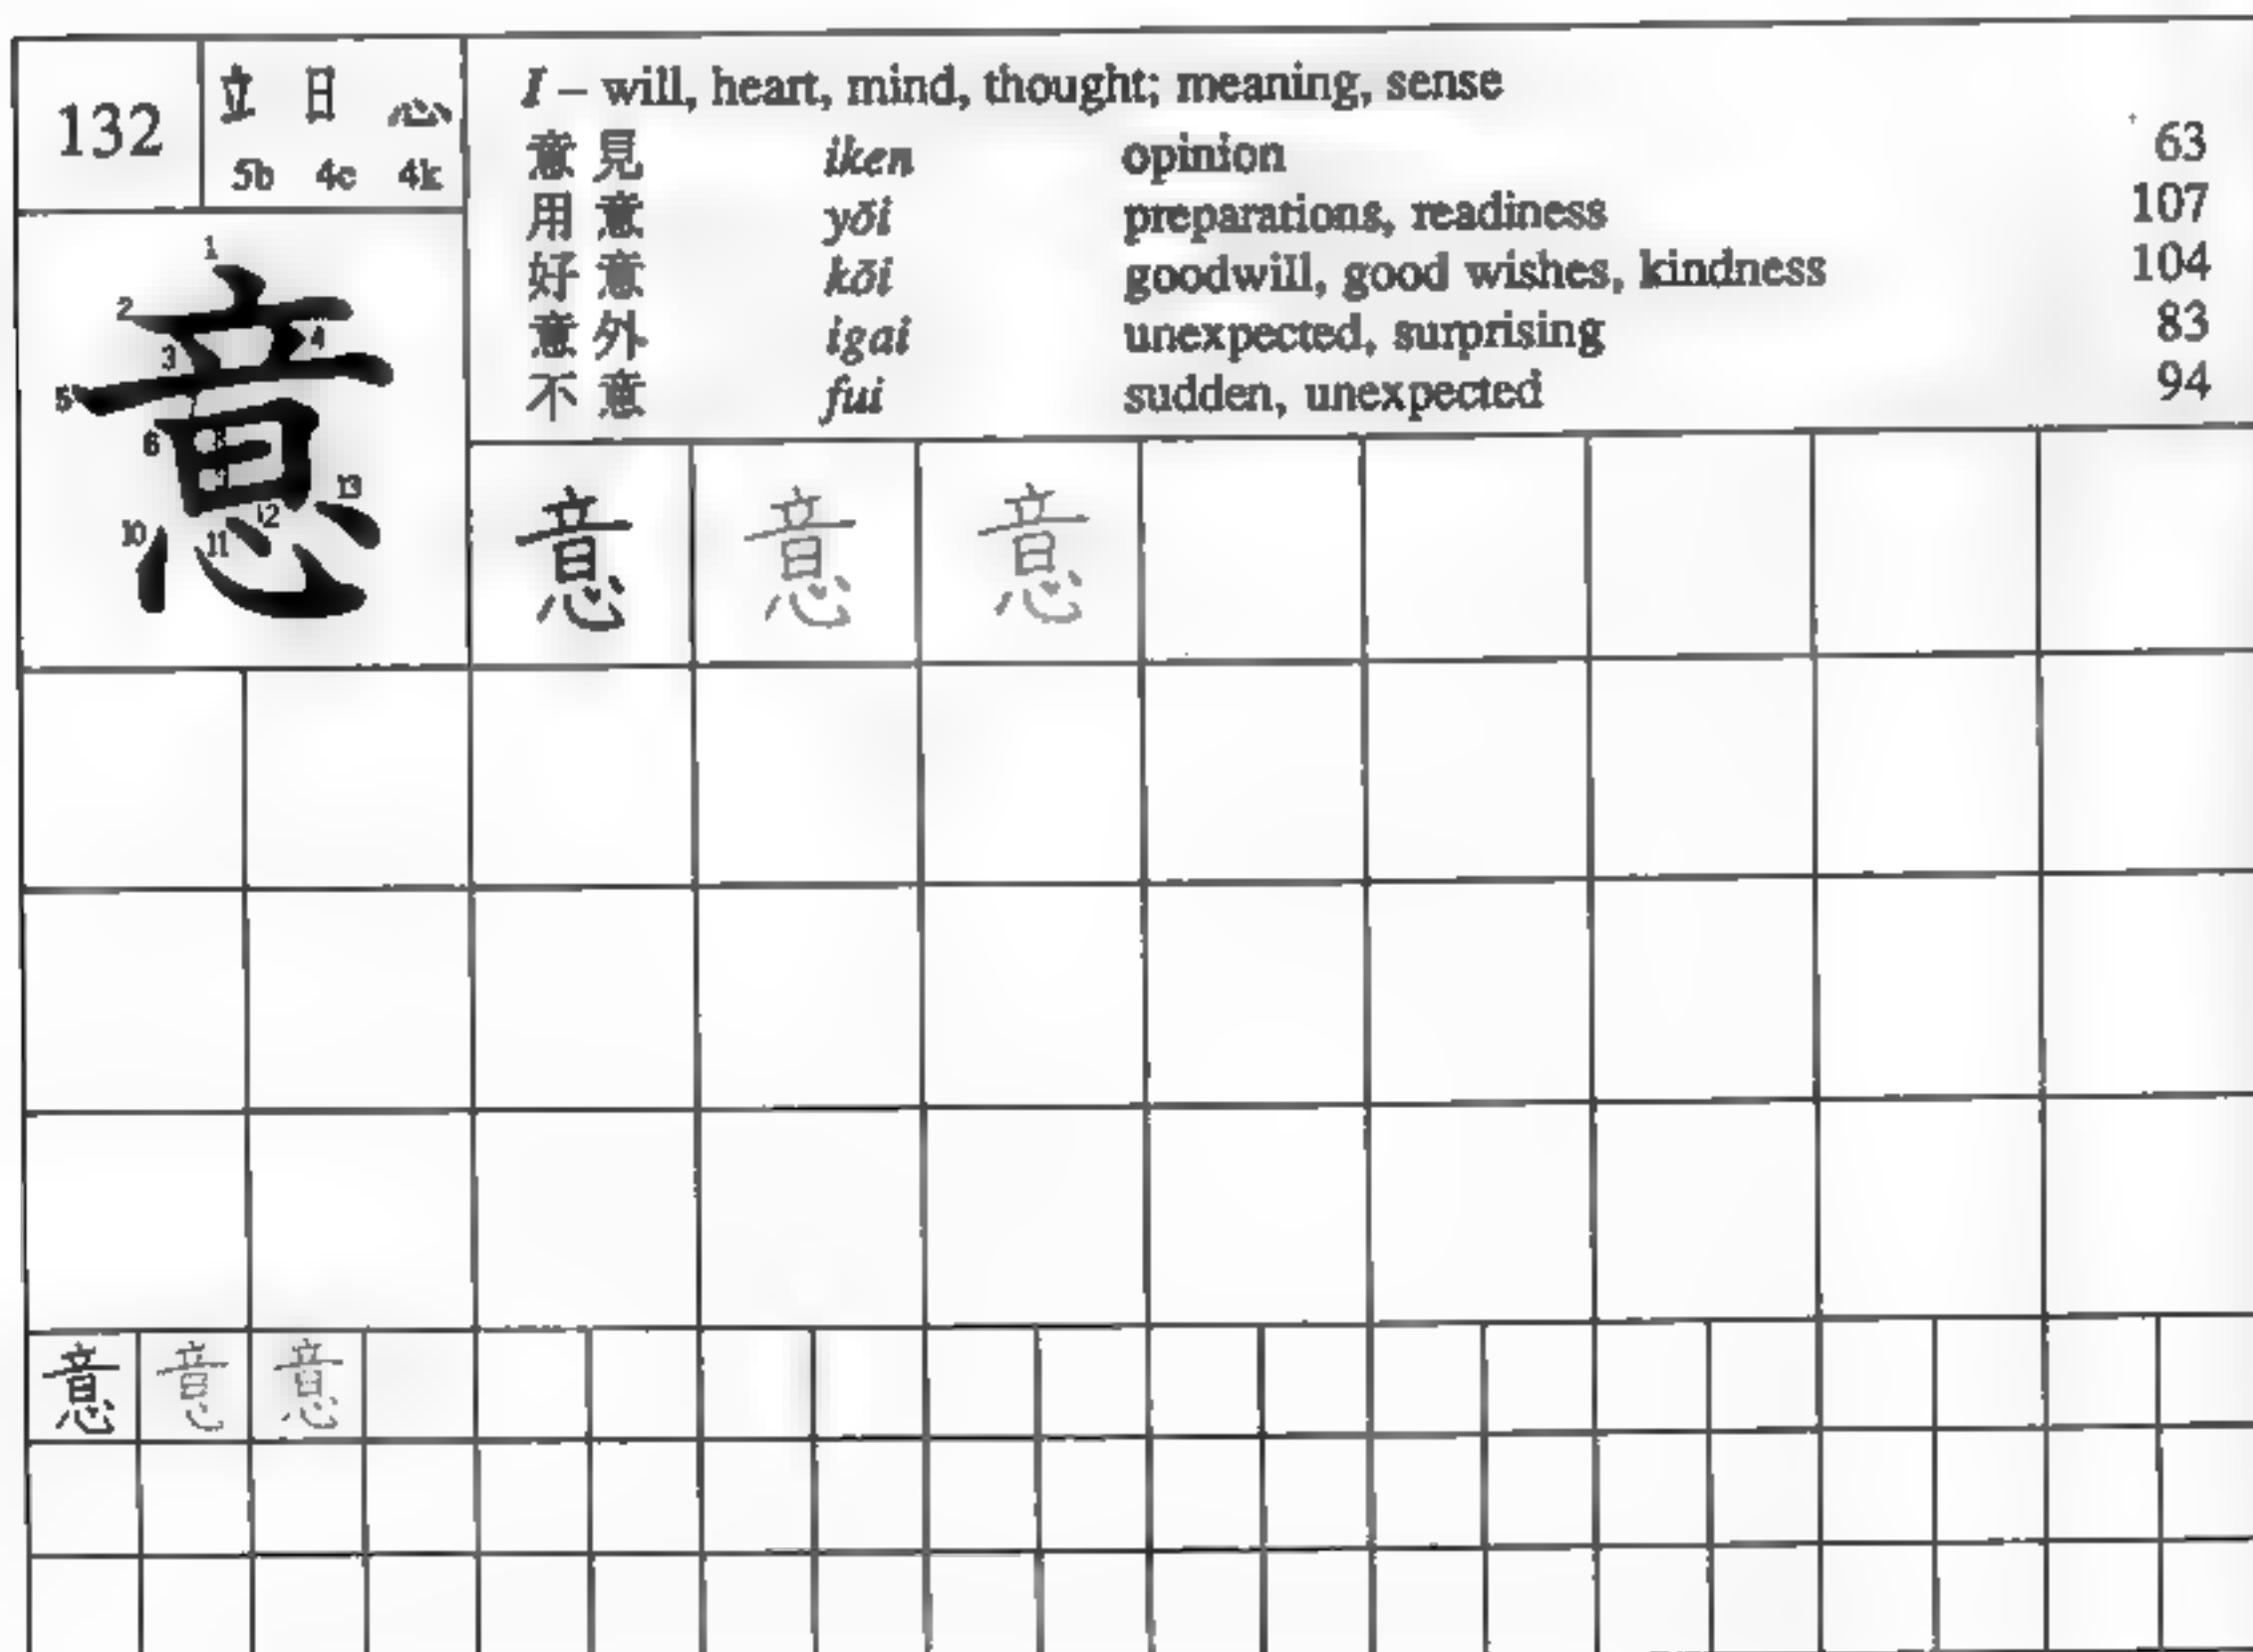 132
立 日 心
5b 4c 4k
I – will, heart, mind, thought; meaning, sense
意見 iken opinion 63
用意 yōi preparations, readiness 107
好意 kōi goodwill, good wishes, kindness 104
意外 igai unexpected, surprising 83
不意 fui sudden, unexpected 94
1
2
3
4
5
6
8
13
12
10
11
意
意 意 意
意 意 意